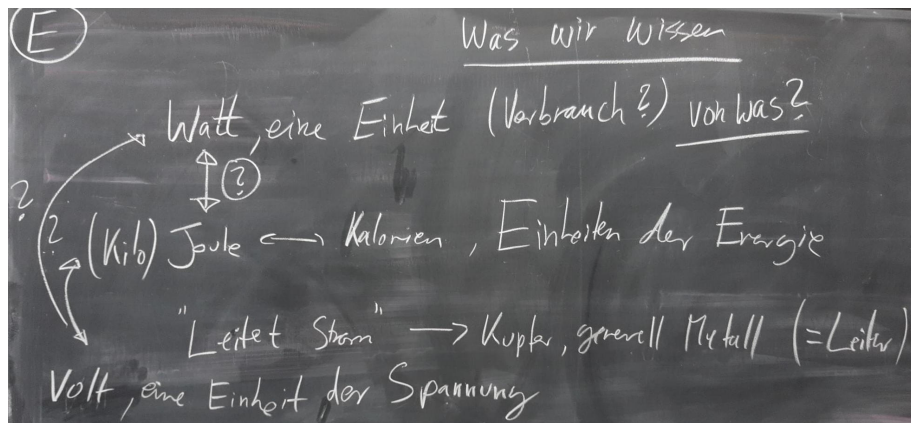 E
Was wir wissen
Watt, eine Einheit (Verbrauch?) von was?
?
?
?
(Kilo) Joule ⟷ Kalorien, Einheiten der Energie
"Leitet Strom" → Kupfer, generell Metall (=Leiter)
Volt, eine Einheit der Spannung